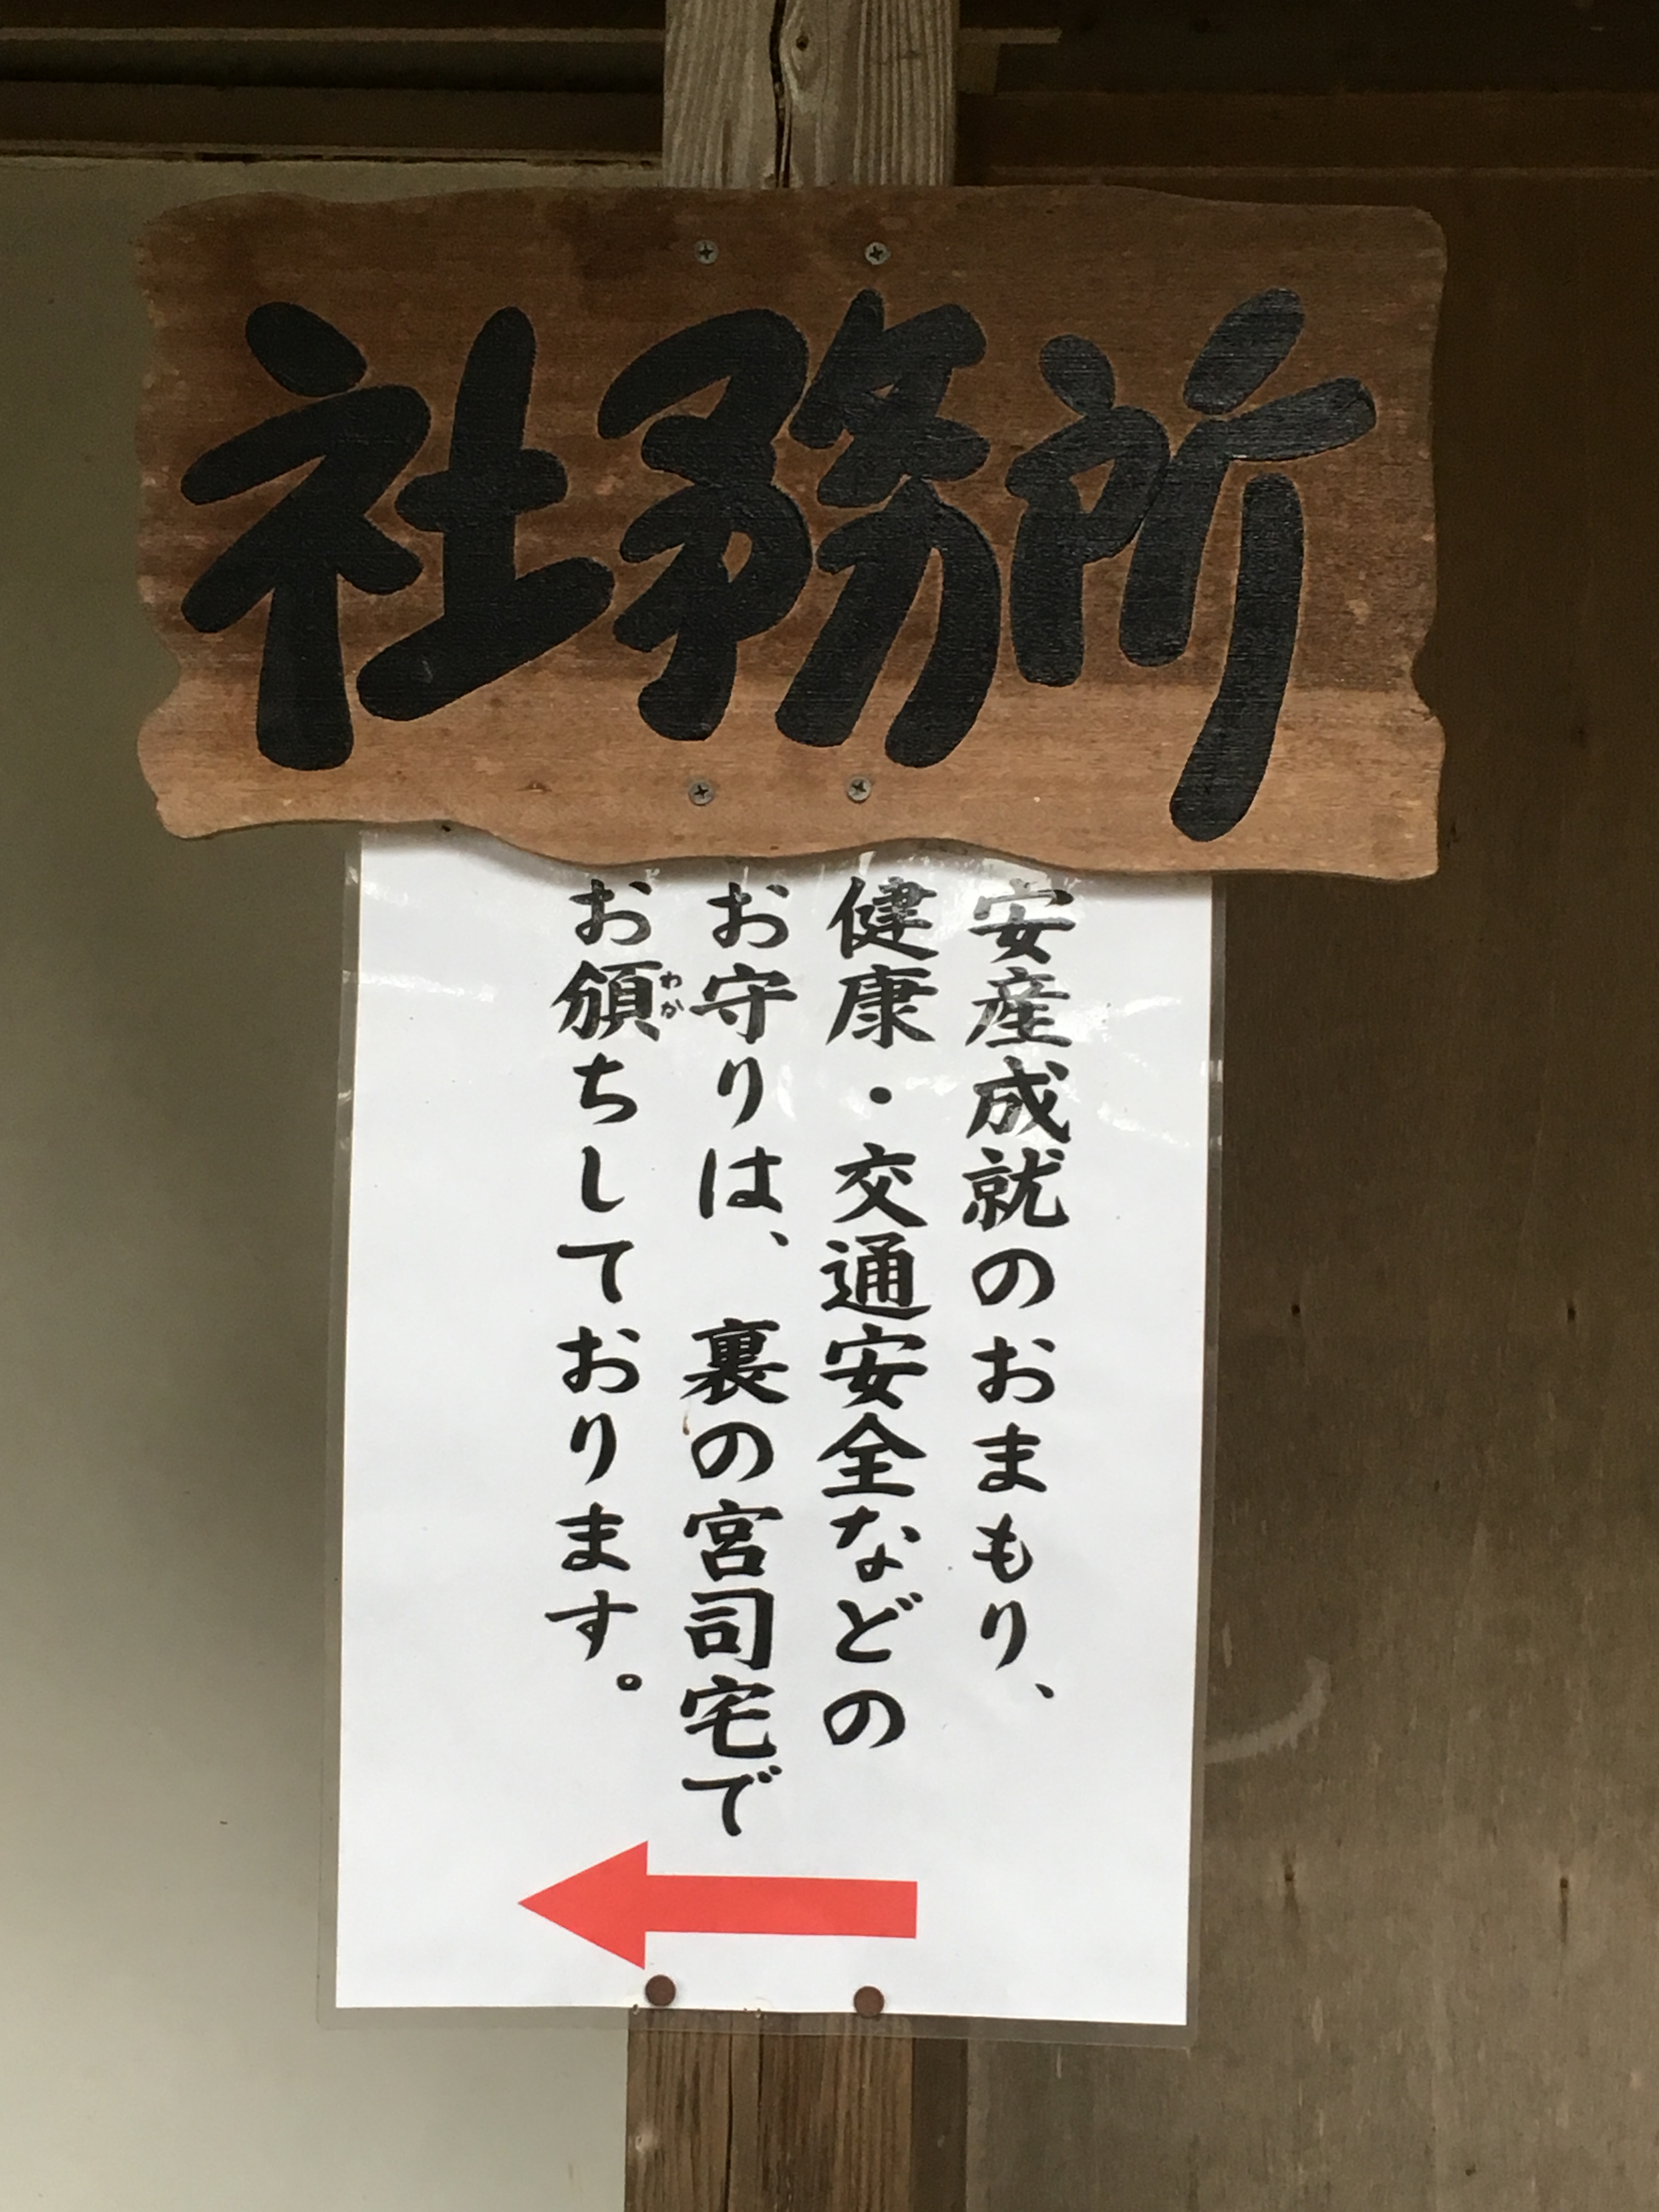 社務所
安産成就のおまもり、
健康・交通安全などの
お守りは、裏の宮司宅で
お頒ちしております。
わか